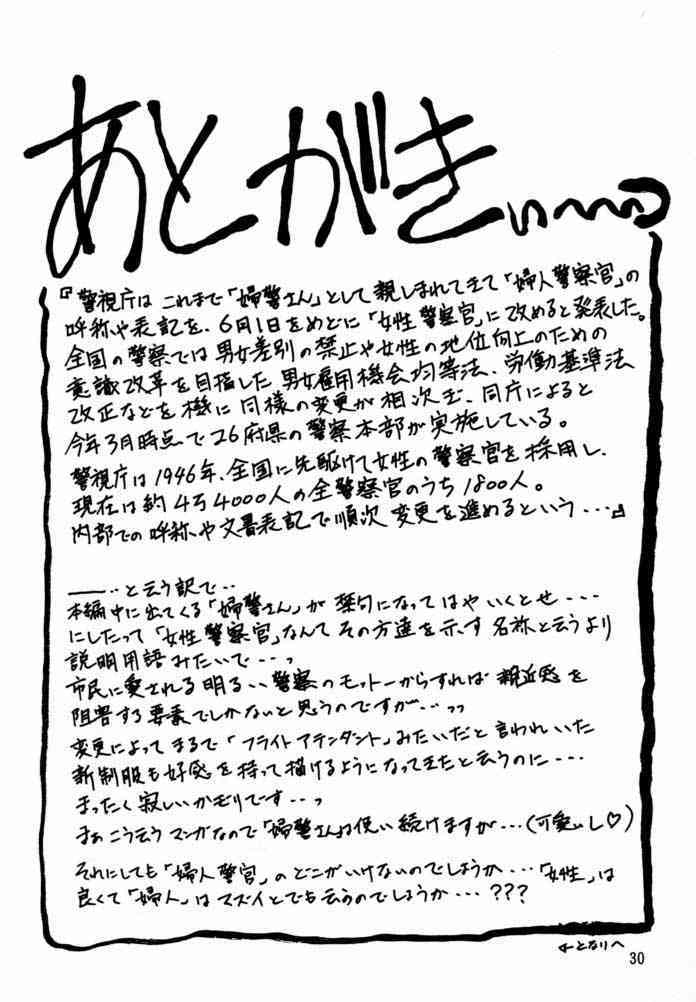 あとがきぃ〜〜ぃっ
『警視庁は これまで「婦警さん」として親しまれてきて「婦人警察官」の
呼称や表記を、6月1日をめどに「女性警察官」に改めると発表した。
全国の警察では男女差別の禁止や女性の地位向上のための
意識改革を目指した男女雇用機会均等法、労働基準法
改正などを機に同様の変更が相次ぎ、同庁によると
今年3月時点で26府県の警察本部が実施している。
警視庁は1946年、全国に先駆けて女性の警察官を採用し、
現在は約4万4000人の全警察官のうち1800人。
内部での呼称や文書表記で順次 変更を進めるという・・・』
――‥と云う訳で‥
本編中に出てくる「婦警さん」が 禁句になって はや いくとせ・・・
にしたって「女性警察官」なんて その方達を示す 名称と云うより
説明用語みたいで・・・っ
市民に愛される明るい警察のモットーからすれば 親近感を
阻害する要素でしかないと思うのですが・・・っっ
変更によって まるで「フライトアテンダント」みたいだと言われいた
新制服も好感を持って描けるようになってきたと云うのに・・・
まったく寂しいかぎりです・・・っ
まぁこう云う マンガなので「婦警さん」は使い続けますが・・・(可愛いし♡)
それにしても「婦人警官」のどこがいけないのでしょうか・・・「女性」は
良くて「婦人」はマズイとでも云うのでしょうか・・・???
←となりへ
30